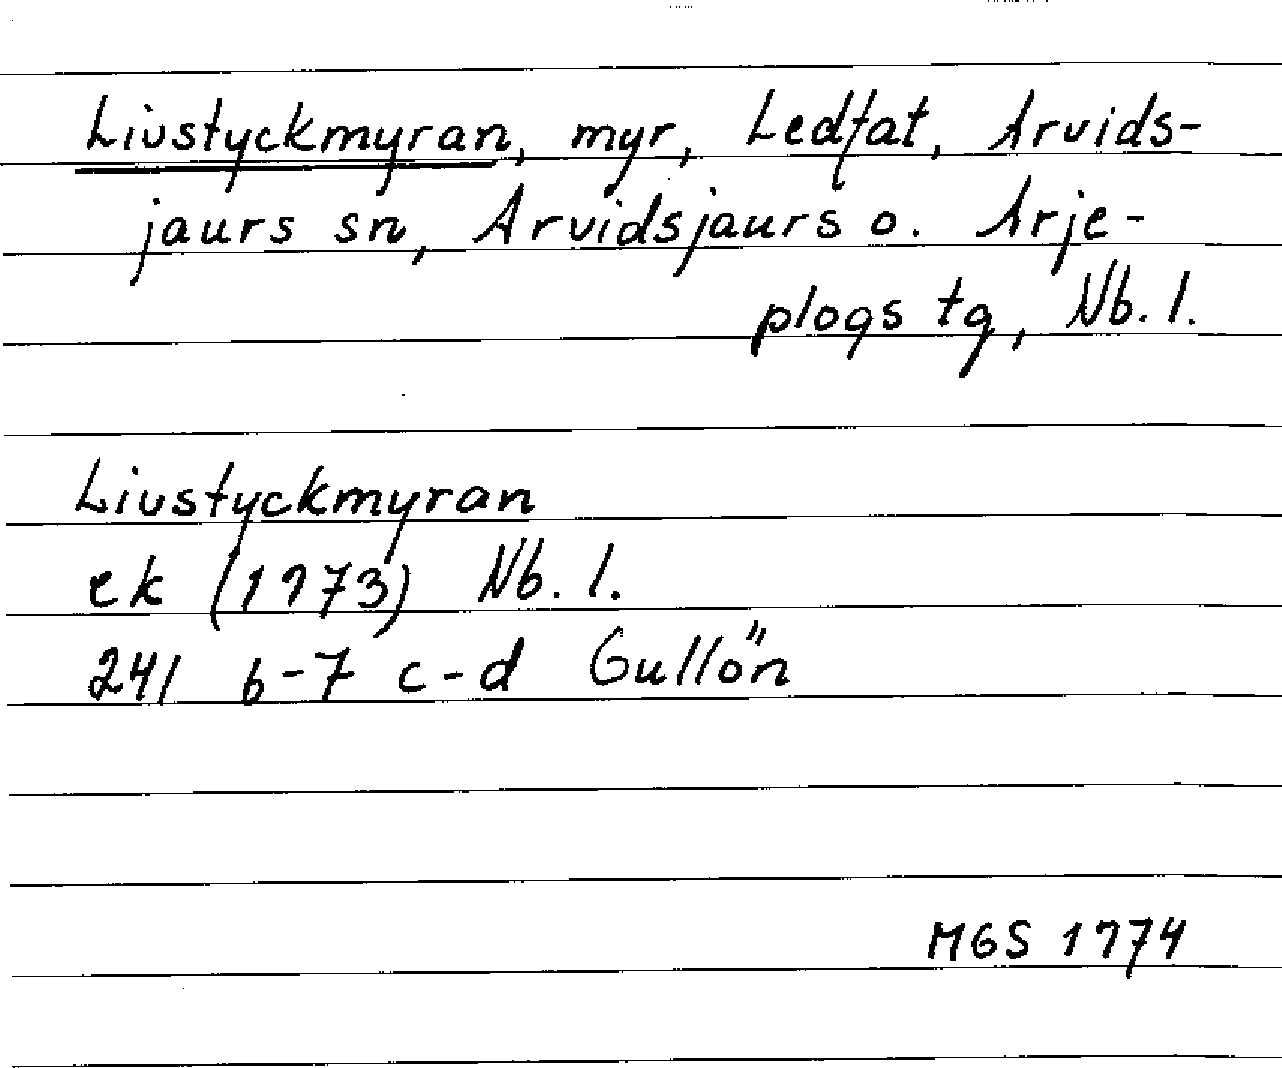 Livstyckmyran, myr, Ledfat, Arvids-
jaurs sn, Arvidsjaurs o. Arje-
plogs tg, Nb. l.
Livstyckmyran
ek (1973) Nb. l.
24I 6-7 c-d Gullön
MGS 1974